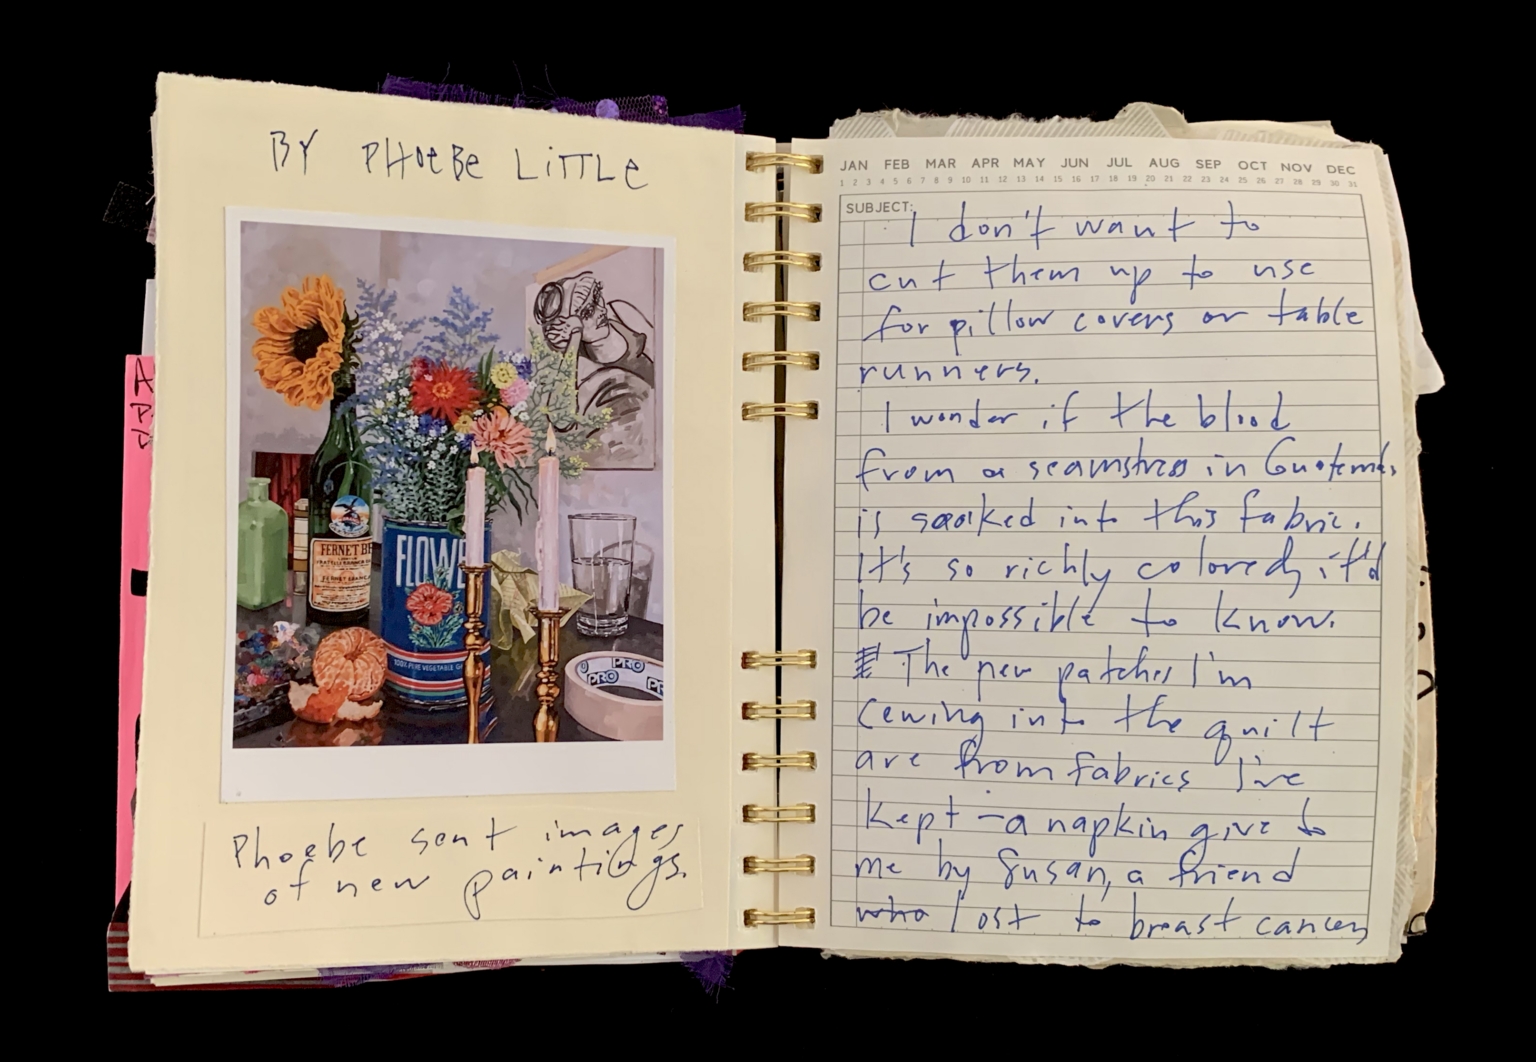 BY PHOEBE LITTLE
FERNET B
FERNET BRANCA
FLOWE
100% PURE VEGETABLE
PRO
PRO
PR
Phoebe sent images
of new paintings.
JAN FEB MAR APR MAY JUN JUL AUG SEP OCT NOV DEC
1 2 3 4 5 6 7 8 9 10 11 12 13 14 15 16 17 18 19 20 21 22 23 24 25 26 27 28 29 30 31
SUBJECT:
I don't want to
cut them up to use
for pillow covers or table
runners.
I wonder if the blood
from a seamstress in Guatemala
is soaked into this fabric.
It's so richly colored, it'd
be impossible to know.
The new patches I'm
cewing into the quilt
are from fabrics I've
kept – a napkin give to
me by Susan, a friend
who I ost to breast cancer,